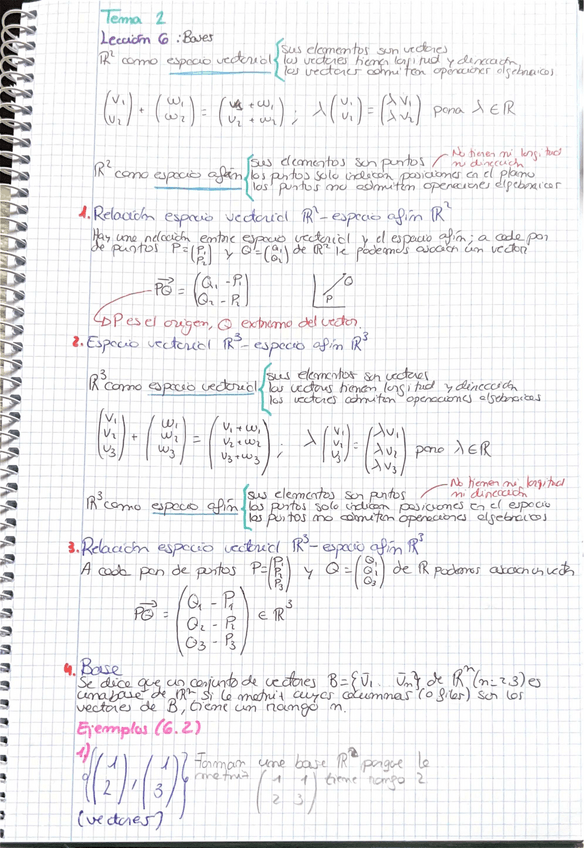 Tema 2
Lección 6: Bases
ℝ² como espacio vectorial { sus elementos son vectores
los vectores tienen longitud y dirección
los vectores admiten operaciones algebraicas
(v₁ v₂) + (w₁ w₂) = (v₁ + w₁ v₂ + w₂) ; λ (v₁ v₂) = (λv₁ λv₂) para λ ∈ ℝ
No tienen ni longitud
ni dirección
ℝ² como espacio afín { sus elementos son puntos
los puntos solo indican posiciones en el plano
los puntos no admiten operaciones algebraicas
1. Relación espacio vectorial ℝ² - espacio afín ℝ²
Hay una relación entre espacio vectorial y el espacio afín; a cada par
de puntos P = (P₁ P₂) y Q = (Q₁ Q₁) de ℝ² le podemos asociar un vector
PQ = (Q₁ - P₁ Q₂ - P₂)
Q
P
↳ P es el origen, Q extremo del vector.
2. Espacio vectorial ℝ³ - espacio afín ℝ³
ℝ³ como espacio vectorial { sus elementos son vectores
los vectores tienen longitud y dirección
los vectores admiten operaciones algebraicas
(v₁ v₂ v₃) + (w₁ w₂ w₃) = (v₁ + w₁ v₂ + w₂ v₃ + w₃) ; λ (v₁ v₁ v₃) = (λv₁ λv₂ λv₃) para λ ∈ ℝ
No tienen ni longitud
ni dirección
ℝ³ como espacio afín { sus elementos son puntos
los puntos solo indican posiciones en el espacio
los puntos no admiten operaciones algebraicas
3. Relación espacio vectorial ℝ³ - espacio afín ℝ³
A cada par de puntos P = (P₁ P₂ P₃) y Q = (Q₁ Q₁ Q₃) de ℝ podemos asociar un vector
PQ = (Q₁ - P₁ Q₂ - P₂ Q₃ - P₃) ∈ ℝ³
4. Base
Se dice que un conjunto de vectores B = {v₁ .. vₙ} de ℝⁿ (n = 2,3) es
una base de ℝⁿ si la matriz cuyas columnas (o filas) son los
vectores de B, tiene un rango n.
Ejemplos (6.2)
1) {(1 2), (1 3)} Forman una base ℝ² porque la
matriz (1 1 2 3) tiene rango 2
(vectores)